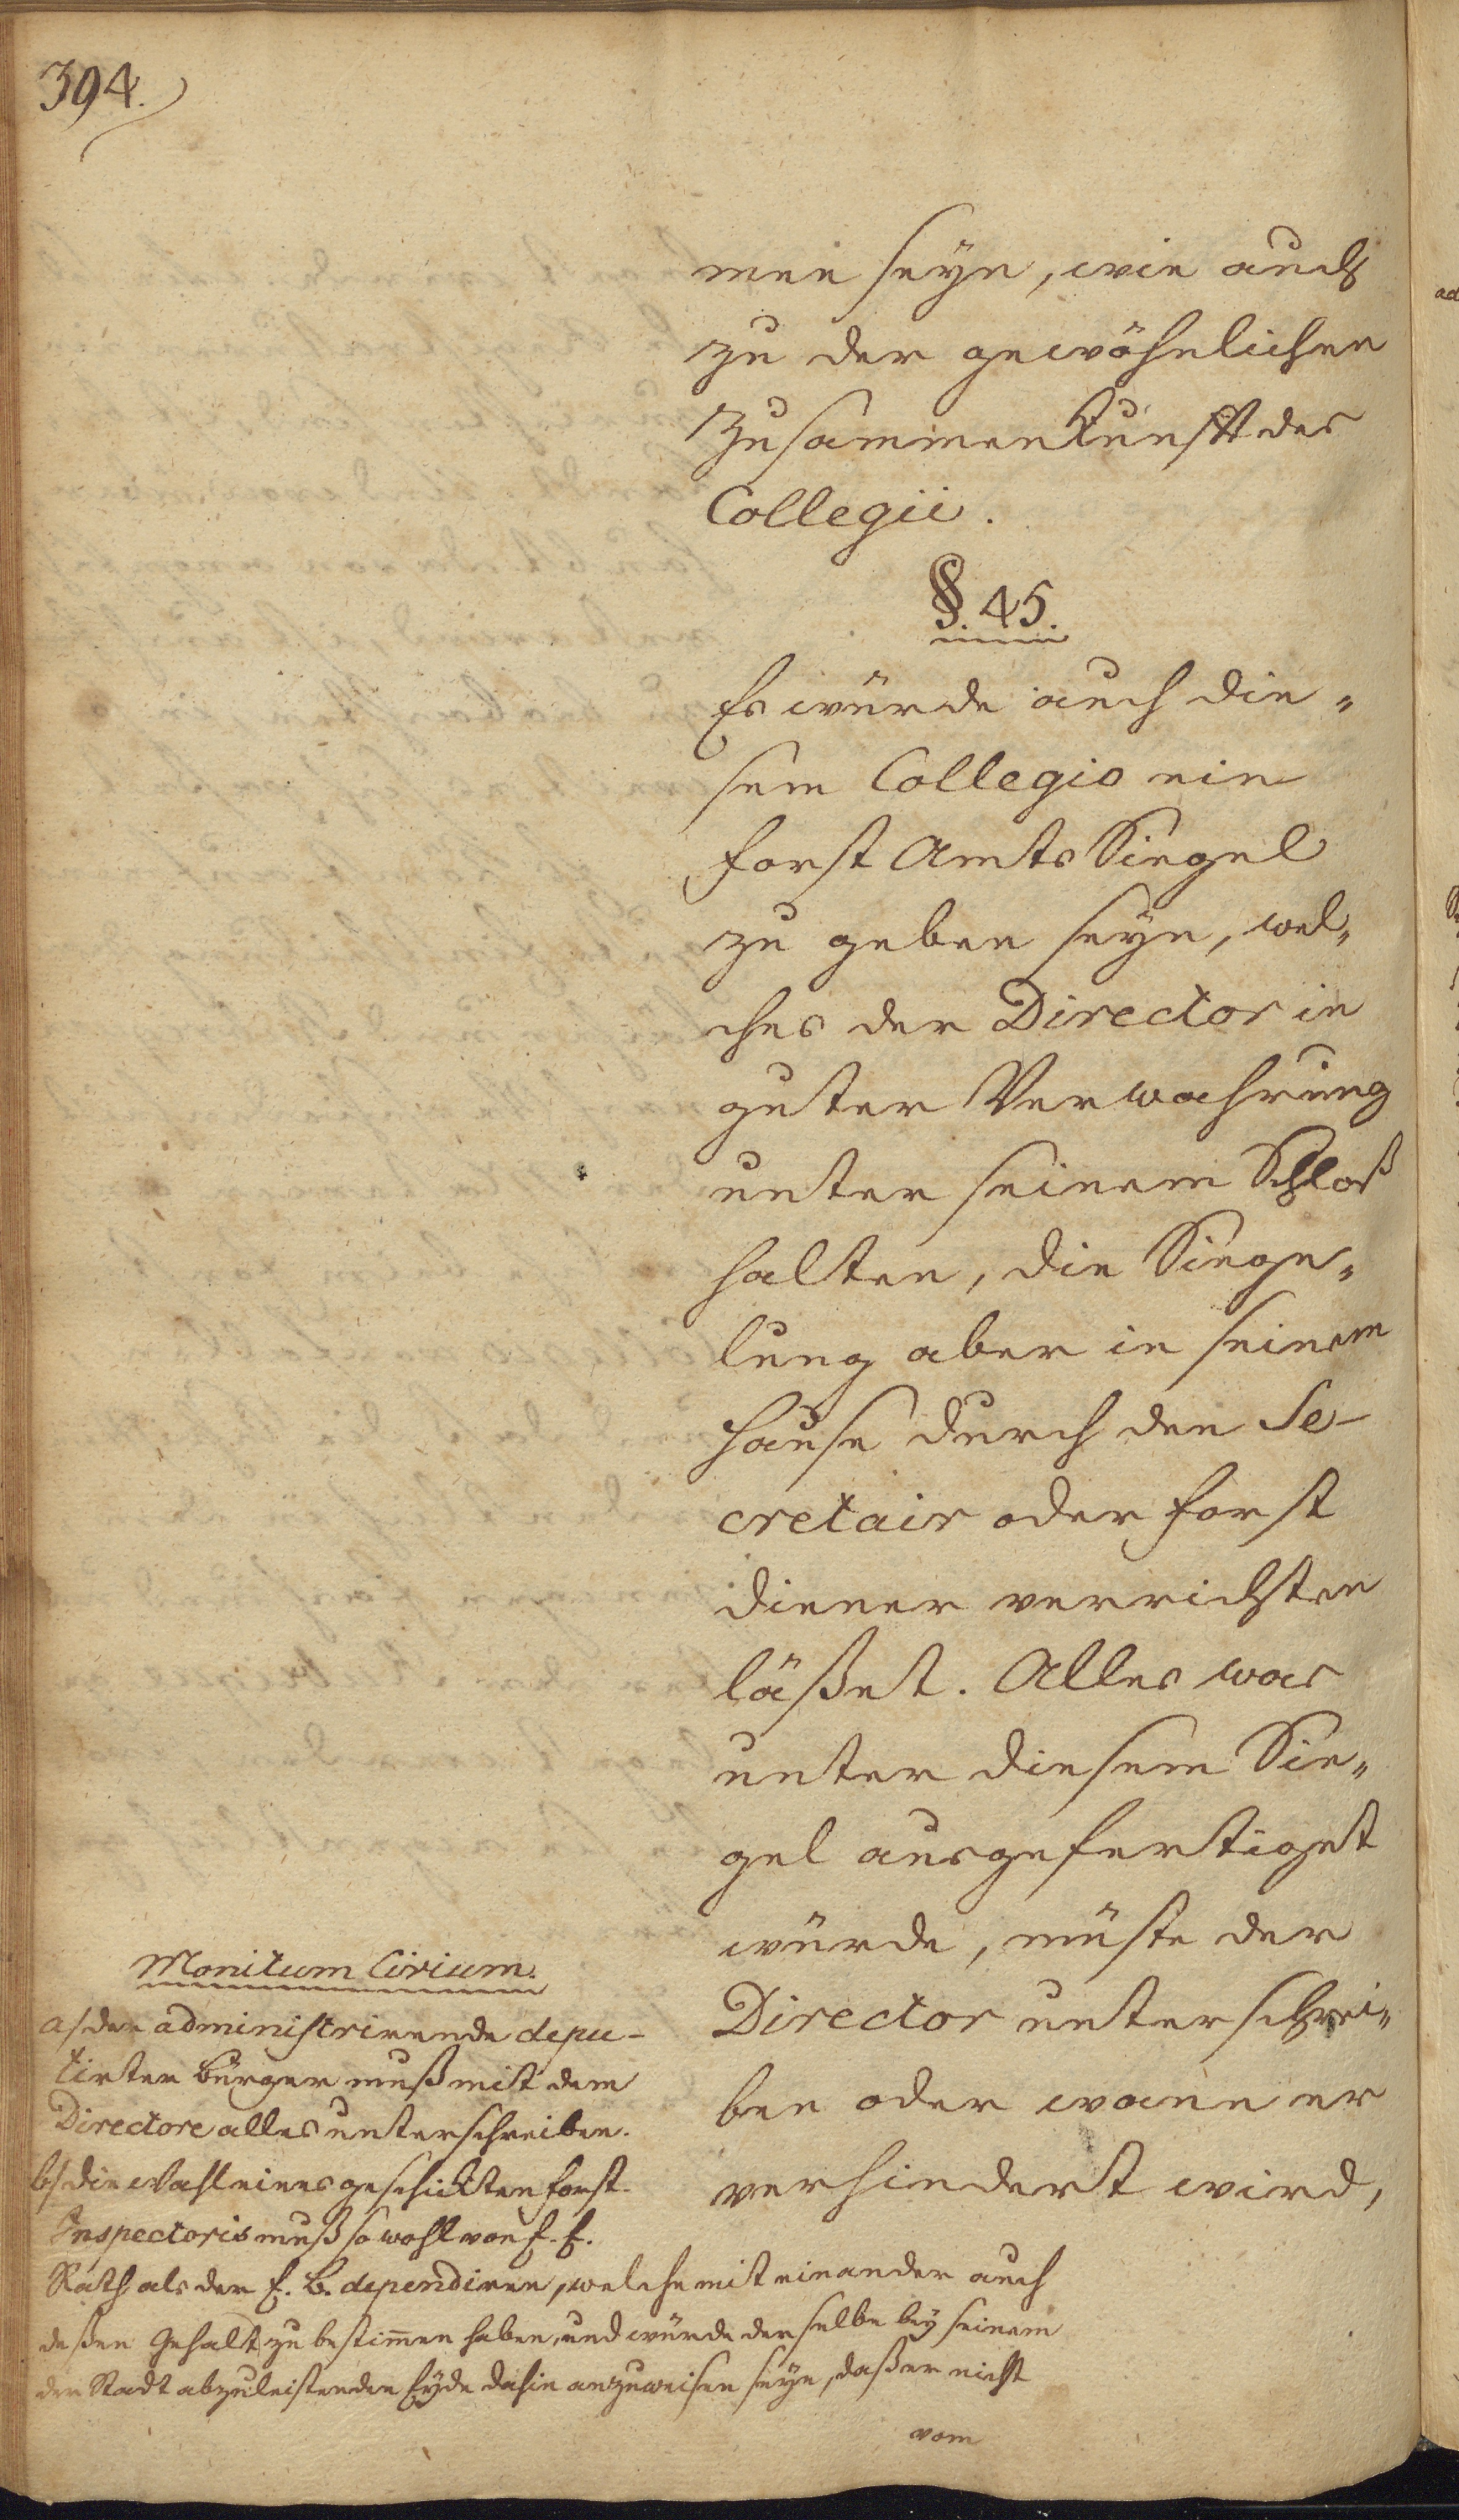 394.
men seyn, wie auch
zu der gewöhnlichen
Zusammenkunfft des
Collegii.
§. 45.
Es würde auch die„
sem Collegio ein
Forst Amts Siegel
zu geben seyn, wel„
ches der Director in
guter Verwahrung
unter seinem Schloß
halten, die Siege„
lung aber in seinem
Hause durch den Se-
cretair oder Forst
diener verrichten
läßet. Alles was
unter diesem Sie„
gel ausgefertiget
würde, müste der
Director unterschrei„
ben oder wann er
verhindert wird,
Monitum Civium.
a/ der administrirende depu-
tirter Bürger muß mit dem
Directore alles unterschreiben.
b/ die Wahl eines geschickten Forst-
Inspectoris muß so wohl von E. E.
Rath als der E. B. dependiren, welche mit einander auch
deßen Gehalt zu bestimen haben, und würde derselbe bey seinem
der Stadt abzuleistenden Eyde dahin anzuweisen seyn, daß er nicht
vom